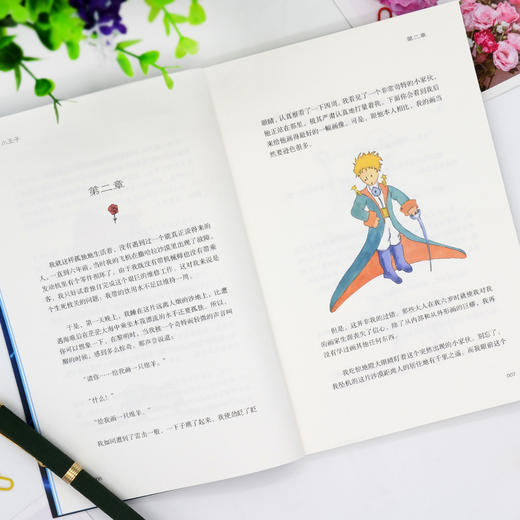 小王子
第二章
我就这样孤独地生活着，没有遇到过一个能真正谈得来的
人，一直到六年前，当时我的飞机在撒哈拉沙漠里出现了故障。
发动机里有个零件损坏了。由于我既没有带机械师也没有带乘
客，我只好试着独自完成这个艰巨的维修工作。这对我来说是
个生死攸关的问题：我带的饮用水不足以维持一周。
于是，第一天晚上，我睡在这片远离人烟的沙地上，比遭
遇海难后在茫茫大海中乘坐木筏漂流的水手还要孤独。所以，
你可以想象一下，在黎明时，当我被一个奇特而轻微的声音叫
醒的时候，感到多么惊奇。那声音说道：
“请你……给我画一只绵羊。”
“什么！”
“给我画一只绵羊。”
我如同遭到了雷击一般，一下子跳了起来。我使劲眨了眨
第二章
眼睛，认真察看了一下四周。我看见了一个非常奇特的小家伙，
他正站在那里，极其严肃认真地打量着我。下面你会看到我后
来给他画得最好的一幅画像。可是，跟他本人相比，我的画当
然要逊色很多。
但是，这并非我的过错。那些大人在我六岁时就使我对我
的画家生涯丧失了信心，除了从内部和从外形画的巨蟒，我再
没有学过画其他任何东西。
我吃惊地瞪大眼睛盯着这个突然出现的小家伙。别忘了，
我坠机的这片沙漠距离人的居住地有千里之遥。而我眼前这个
007